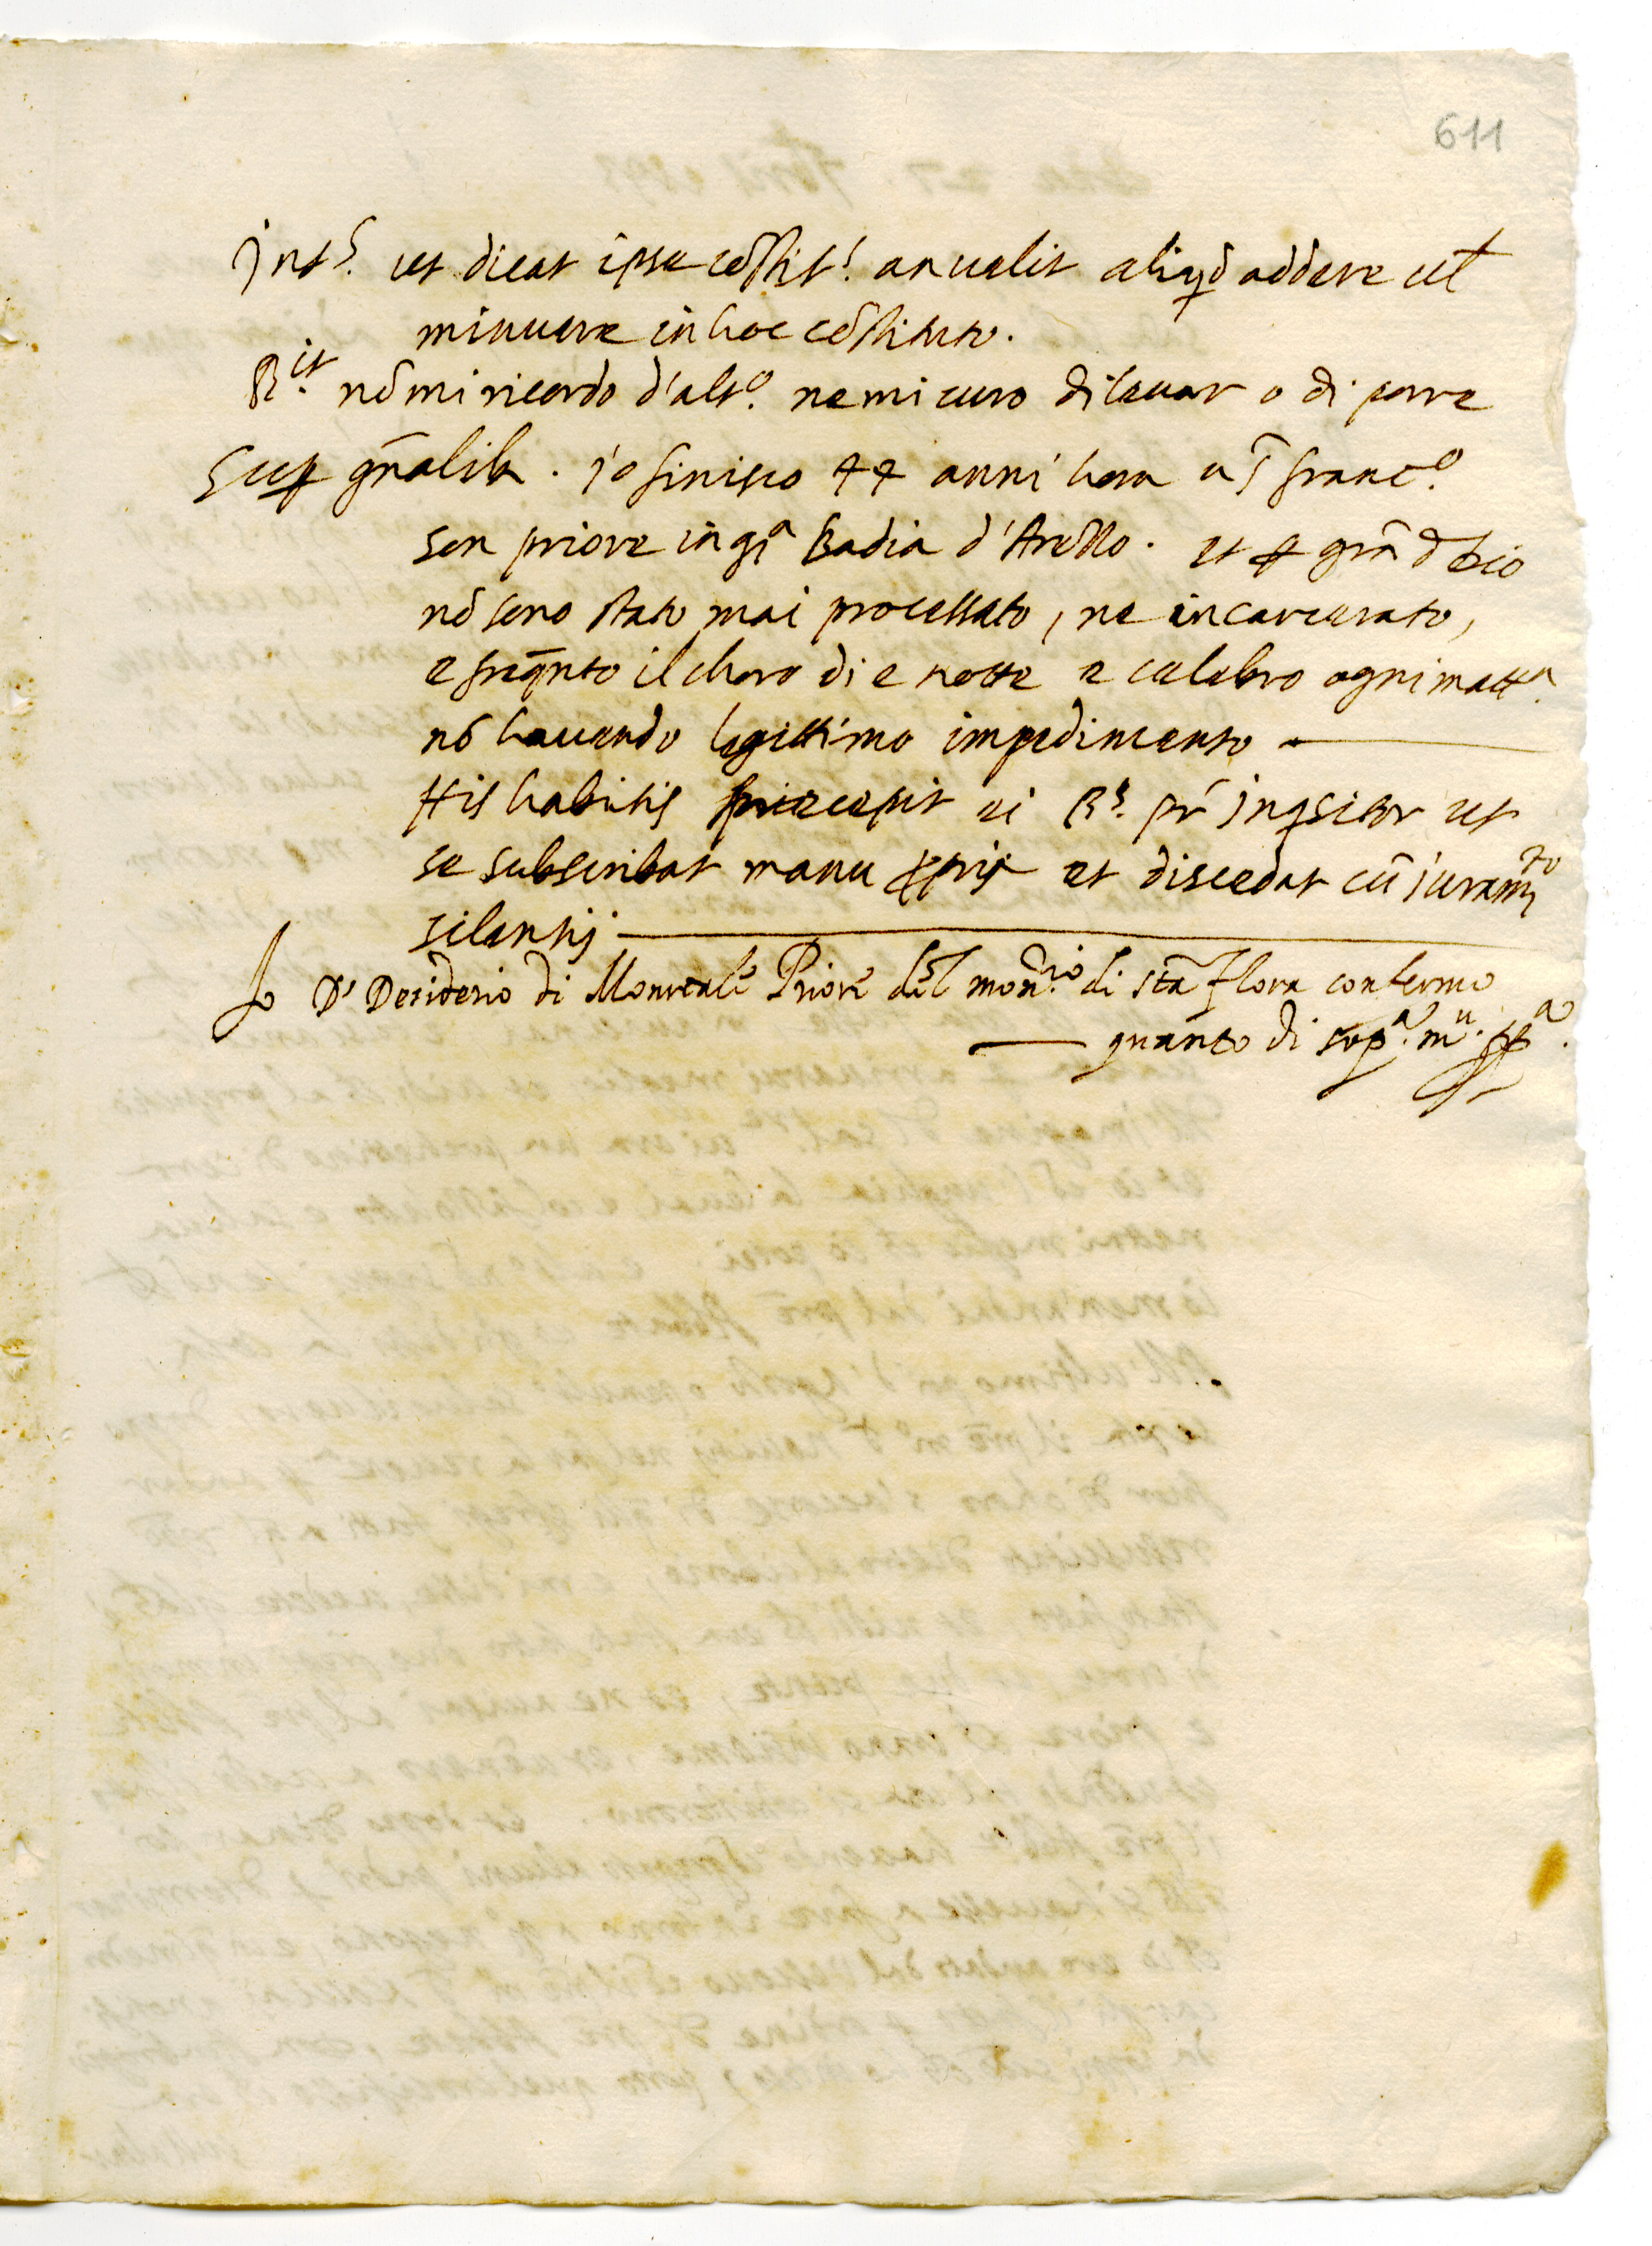 611
Int.s ut dicat ipse cõstit.s an velit aliqd addere vel
minuere in hoc cõstituto.
R.it nõ mi ricordo d'alt.o ne mi curo di levar o di porre
Sup gnãlib. io finisco 44 anni hora a S franc.o
son priore in qsta Badia d'Arezzo. et p grã d dio
nõ sono stato mai processato, ne incarcerato,
e freqnto il choro di e notte e celebro ogni matt.a
nõ havendo legittimo impedimento
His habitis precepit ei R.s pr inqsitor ut
se subscribat manu ppria et discedat cũ iuram.to
silentij
Io D. Desiderio di Monreale Priore del mon.rio di sta flora confermo
quanto di sop.a m.u pp.a